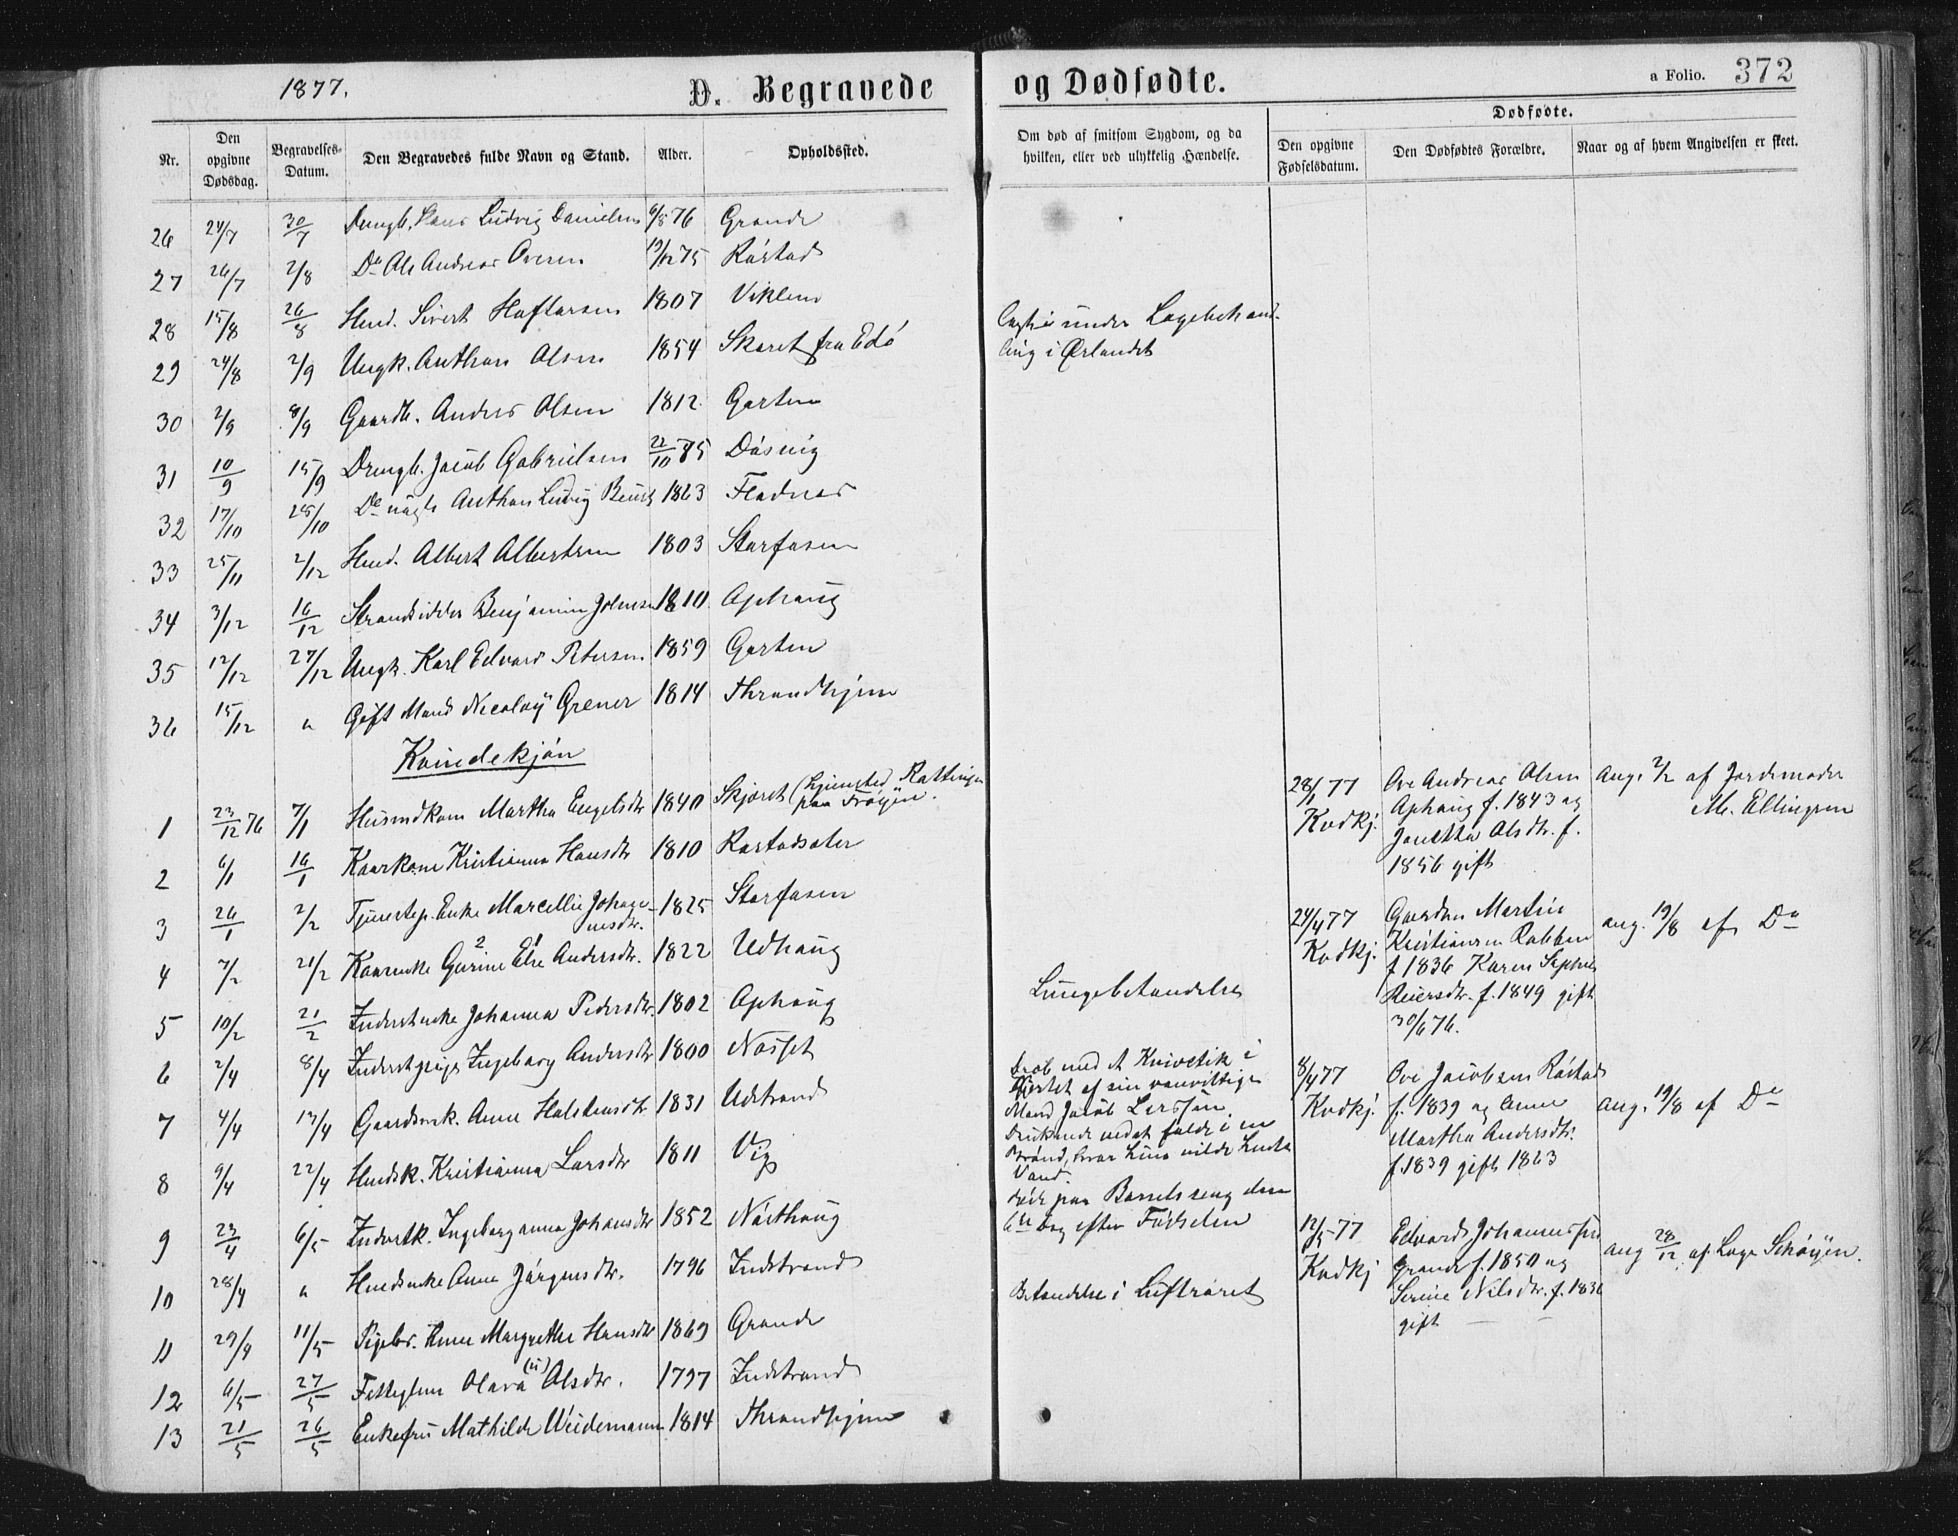 1877.
D. Begravede og Dødfødte.
a Folio. 372
Nr.
Den opgivne Dødsdag.
Begravelses-Datum.
Den Begravedes fulde Navn og Stand.
Alder.
Opholdssted.
Om død af smitsom Sygdom, og da hvilken, eller ved ulykkelig Hændelse.
Dødfødte.
Den opgivne Fødselsdatum.
Den Dødfødtes Forældre.
Naar og af hvem Angivelsen er skeet.
26 24/7 30/7 Drengb. Hans Ludvig Danielsen 6/5 76 Grande
27 26/7 2/8 Do Ole Andreas Ovesen 19/12 75 Råstad
28 15/8 26/8 Husmd. Sivert Haftorsen 1807 Viklem
29 24/8 2/9 Ungk. Anthon Olsen 1854 Skaret fra Edö
under Lægebehand-
ling i Ørlandet
30 2/9 8/9 Gaardb. Anders Olsen 1812 Garten
31 10/9 15/9 Drengb. Jacob Gabrielsen 21/10 75 Døsvig
32 17/10 28/10 Do Anthon Ludvig 1863 Fladnes
33 25/11 2/12 Husmd. Albert Albertsen 1803 Storfosen
34 3/12 16/12 Strandsidder Benjamin Johnsen 1810 Ophaug
35 12/12 27/12 Ungk. Karl Edvard Petersen 1859 Garten
36 15/12 " Gift Mand Nicolay Grener 1814 Throndhjem
Kvindekjøn
1 23/12 76 7/1 Husmdkone Martha Engelsdtr 1840 Skjæret (hjemsted Rottingen
paa Frøyen.
2 6/1 16/1 Kaarkone Kristianna Hansdtr 1810 Råstadsæter
3 26/1 2/2 Enke Marcellie Johan-
nesdtr. 1825 Storfosen
4 7/2 21/2 Kaarenke Gurine Else Andersdtr. 1822 Udhaug
5 10/2 21/2 Inderstenke Johanna Pedersdtr. 1802 Ophaug
Lungebetændelse
6 2/4 8/4 Inderstpige Ingeborg Andersdtr 1800
7 4/4 13/4 Gaardmk. Anne Halstensdtr 1831 Udstrand
Drab med et Knivstik i
Hjertet af sin vanvittige
Mand Jacob
8 9/4 22/4 Husmdsk. Kristianna Larsdtr 1811 Vig
Druknede ved at falde i en
Brønd, hvor hun vilde hente
Vand.
9 23/4 6/5 Inderstk. Ingeborganna Johansdtr 1852
døde paa Barselseng den
6te Dag efter Fødselen
10 28/4 " Husmdsenke Anne Jørgensdtr. 1796 Indstrand
Betændelse i Luftrøret
11 29/4 11/5 Pigeb. Anne Margrethe Hansdtr 1869 Grande
12 6/5 27/5 Olava Olsdtr. 1797 Indstrand
13 21/5 26/5 Enkefru Mathilde Weidemann 1814 Throndhjem
28/1 77
Kvdkj.
Ove Andreas Olsen
Ophaug f. 1843 og
Jonetta Olsdtr. f.
1856 gift
Ang. 2/2 af Jordemoder
M. Ellingsen
24/4 77
Kvdkj.
Gaardm Martin
Kristiansen Rabben
f 1836 Karen Sophie
Reiersdtr. f. 1849 gift
30/6 76.
ang. 19/8 af Do
8/4 77
Kvdkj.
Ove Jacobsen Råstad
f. 1839 og Anne
Martha Andersdtr.
f. 1839 gift 1863
ang. 19/8 af Do
12/5 77
Kvdkj
Edvard Johannessen
Grande f. 1850 og
Serine Nilsdtr. f. 1836
gift
ang 28/12 af Læge Schøyen.